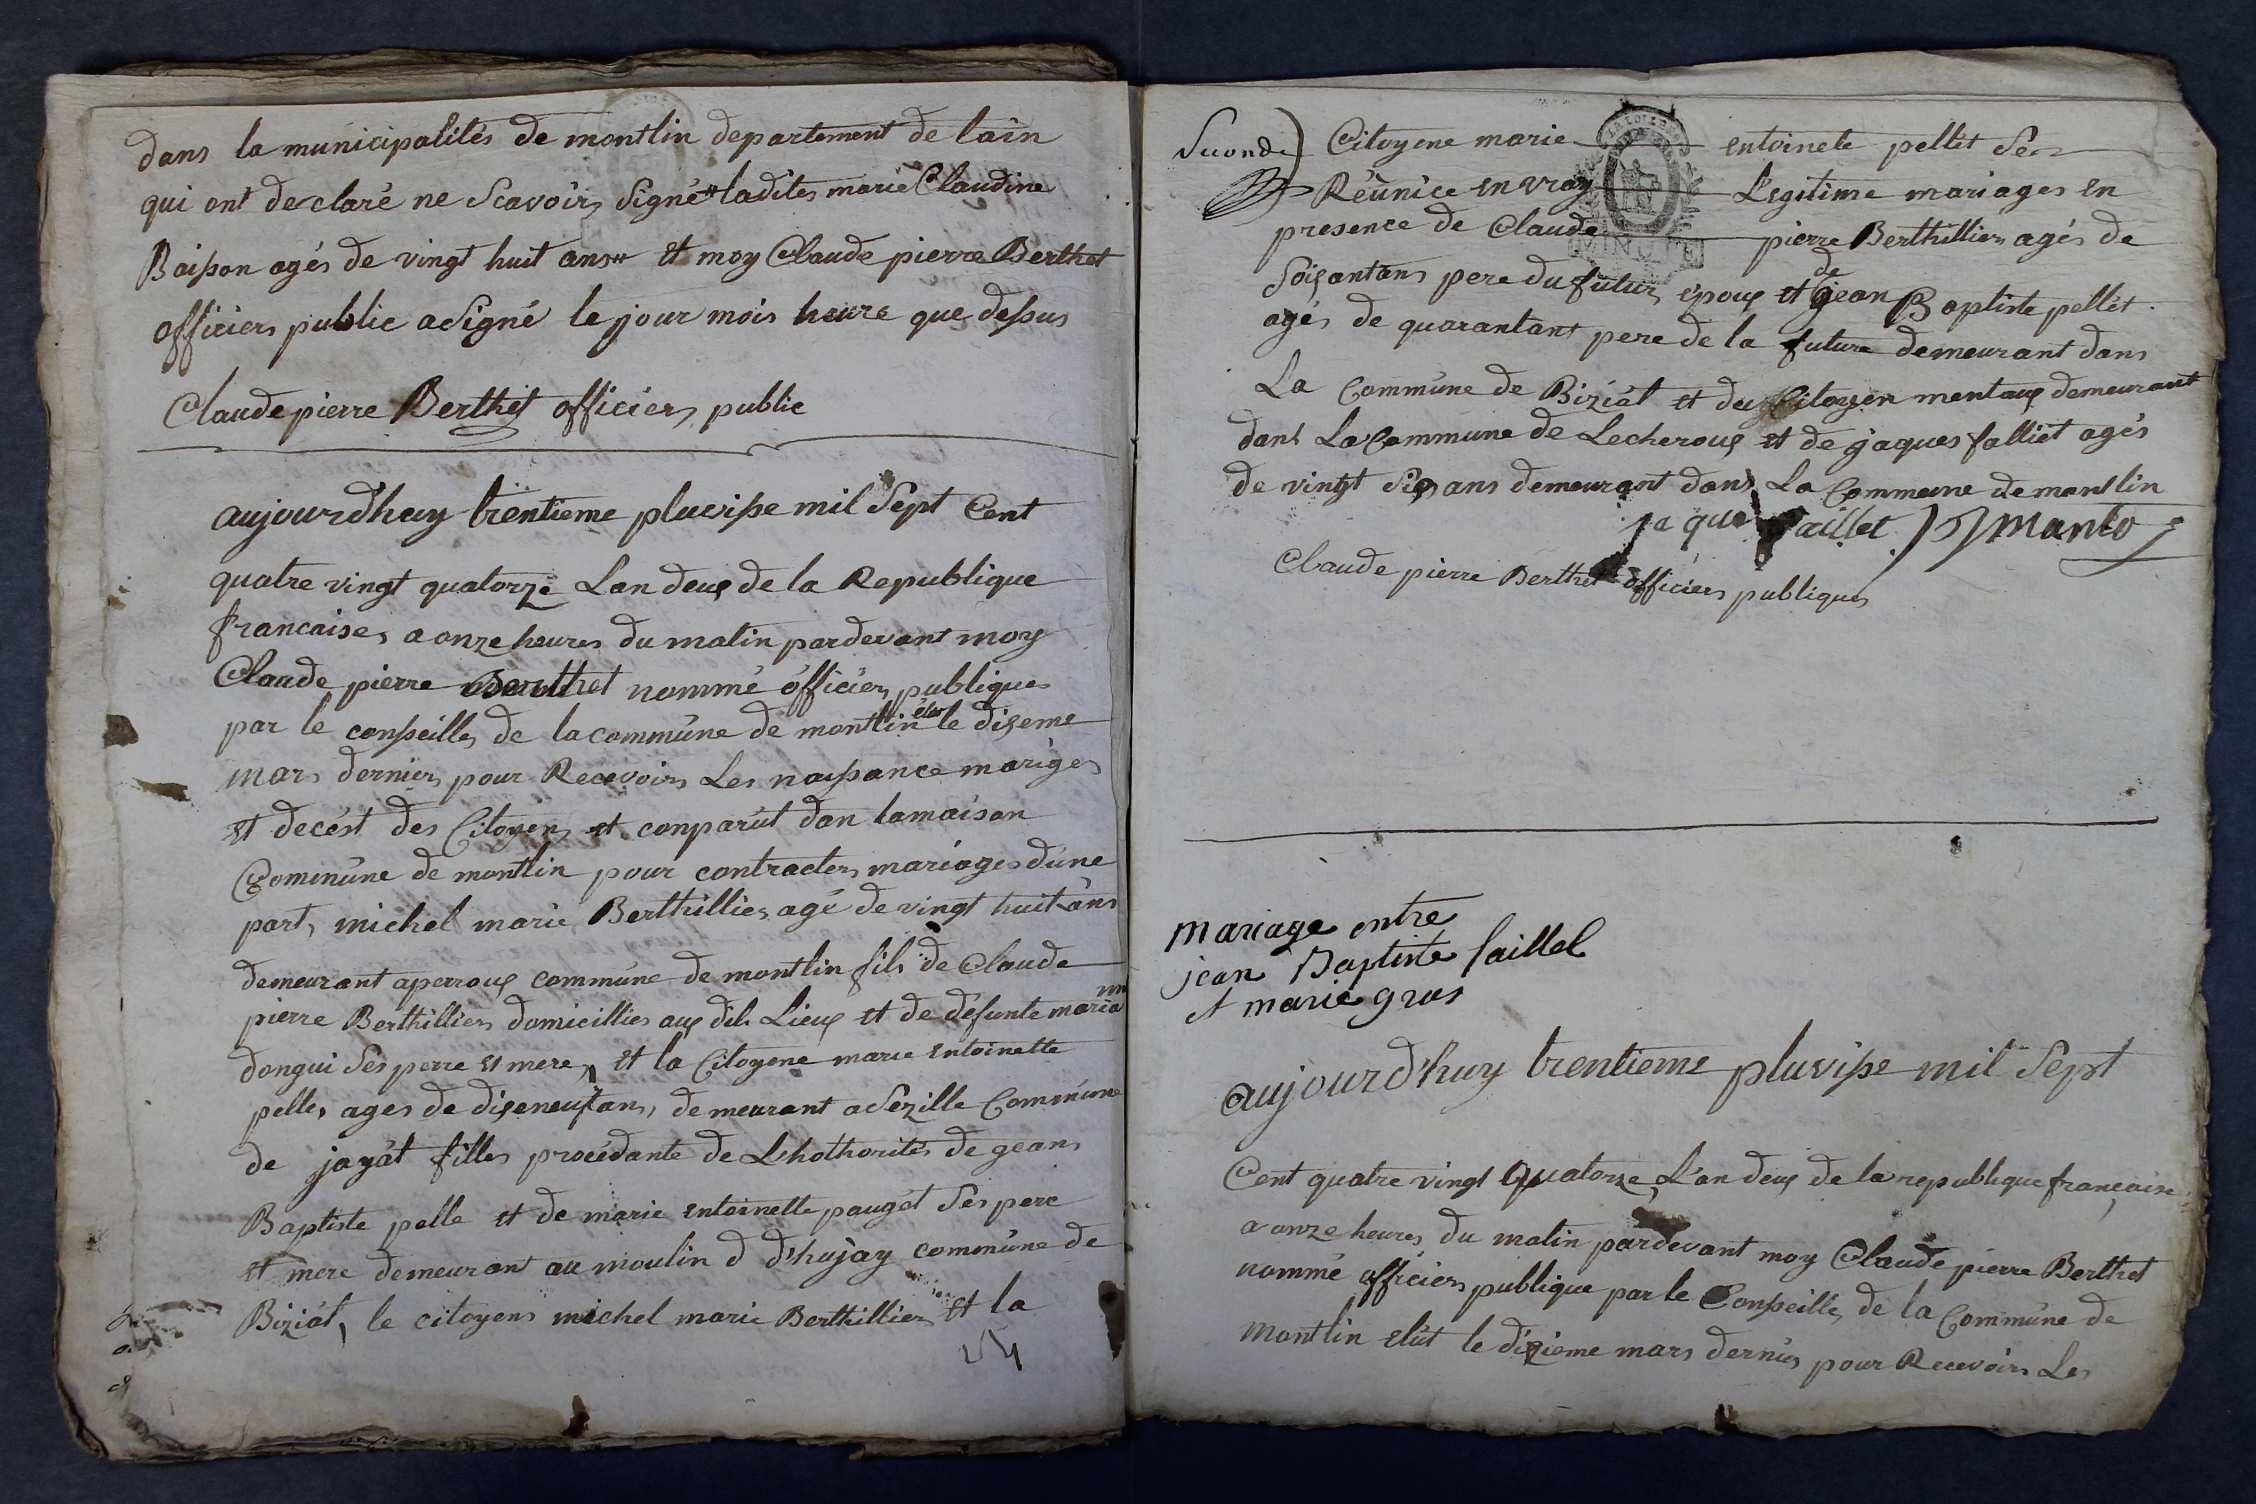 dans la municipalités de montlin departement de lain
qui ont declaré ne Scavoirs Signé # ladites marie Claudine
Baisson agés de vingt huit ans # et moy Claude pierre Berthet
officiers public a Signé le jour mois heure que dessus
Claude pierre Berthet officiers public
aujourdhuy trentieme pluvisse mil Sept Cent
quatre vingt quatorze Lan deux de la Republique
francaises a onze heures du matin pardevant moy
Claude pierre Berthet nommé officiers publiques
par le conseille de la commune de montlin élu le dixeme
mars derniers pour Recevoirs Les naissance mariges
et decést des Citoyens et conparút dan lamaison
Commúne de montlin pour contracters mariages dúne
part, michel marie Berthilliers agé de vingt huit ans
demeurant aperroux commúne de montlin fils de Claude
pierre Berthilliers domicilliés aux dits Lieux et de défunte mariann
dongui Ses perre et mere, et la Citoyene marie entoinette
pelle, ages de dixeneuf ans, demeurant a Sezille Commúne
de jayát filles procédante de Lhothorités de geans
Baptiste pelle et de marie entoinette paugét Ses pere
et mere demeurant au moulin d d'hujay commúne de
Biziát, le citoyens michel marie Berthilliers et la
Seconde Citoyene marie entoinete pellet Ses
Réunice en vray Legitime mariages en
presence de Claude pierre Berthilliers agés de
Soixantans pere du futur époux et de jean Baptiste pellét
agés de quarantans pere de la future demeurant dans
La Commúne de Biziát et du Citoyen mentaux demeurant
dans La Commune de Lecheroux et de jaques falliét agés
de vingt Six ans demeurant dans La Commune de montlin
jaque faillet manto
Claude pierre Berthet officiers publiques
mariage entre
jean Baptiste faillet
et marie gras
aujourd'huy trentieme pluvisse mil Sept
Cent quatre vingt quatorze, L'an deux de la republique française
a onze heures du matin pardevant moy Claude pierre Berthet
nommé officiers publique par le Conseille de la Commúne de
montlin elút le dixieme mars dernies pour Recevoirs Les